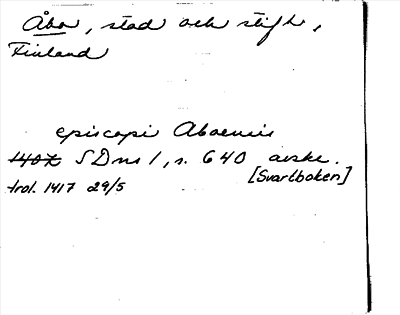 Åbo, stad och stift,
Finland
episcopi Aboensis
1407 SDns 1, s. 640 avskr.
[Svartboken]
trol. 1417 29/5